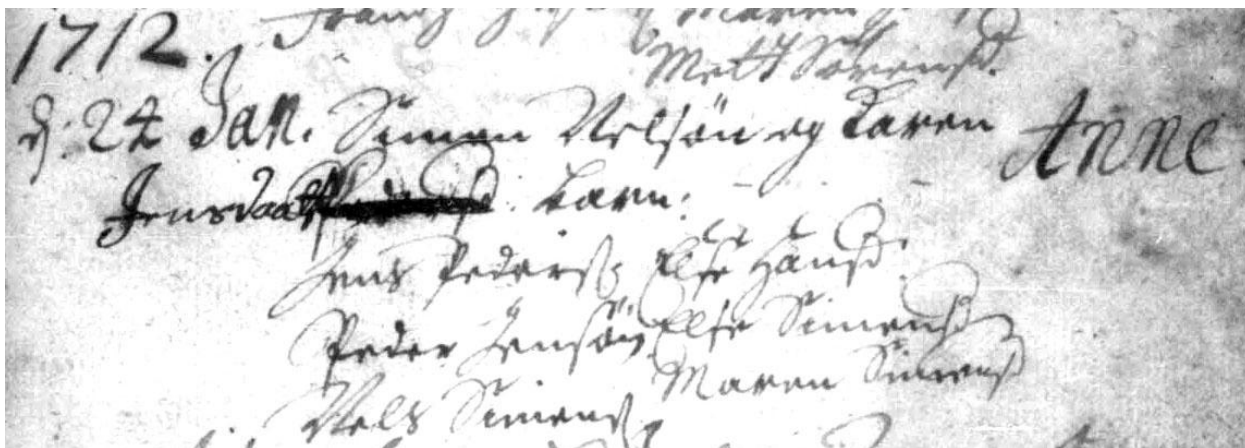 1712.
Mett Sörensd.
d: 24 Jan. Simon Nelsön og Karen Anne.
Jensdaat barn.
Jens Peders, Else Hansd.
Peder Jensön, Else Simensd
Nels Simens, Maren Simensd